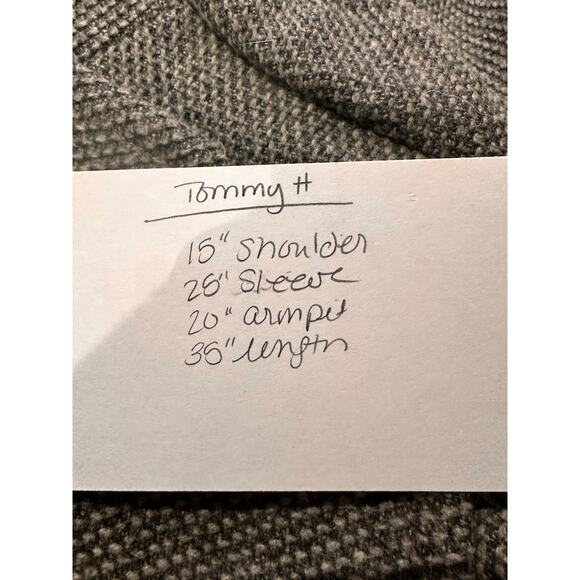 Tommy H
15" Shoulder
25" Sleeve
20" armpit
35" length